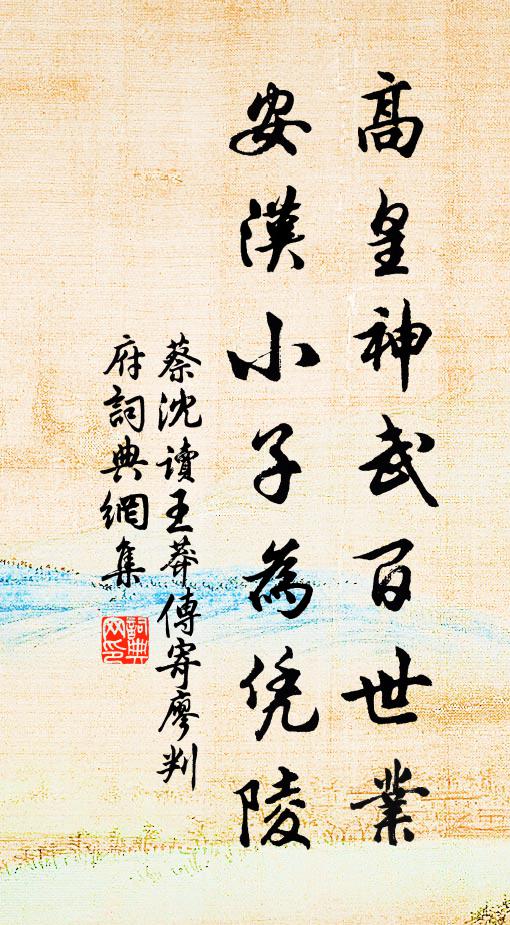 高皇神武百世業
安漢小子為凭陵
蔡沈讀王莽傳寄廖判
府詞典網集
詞典网印